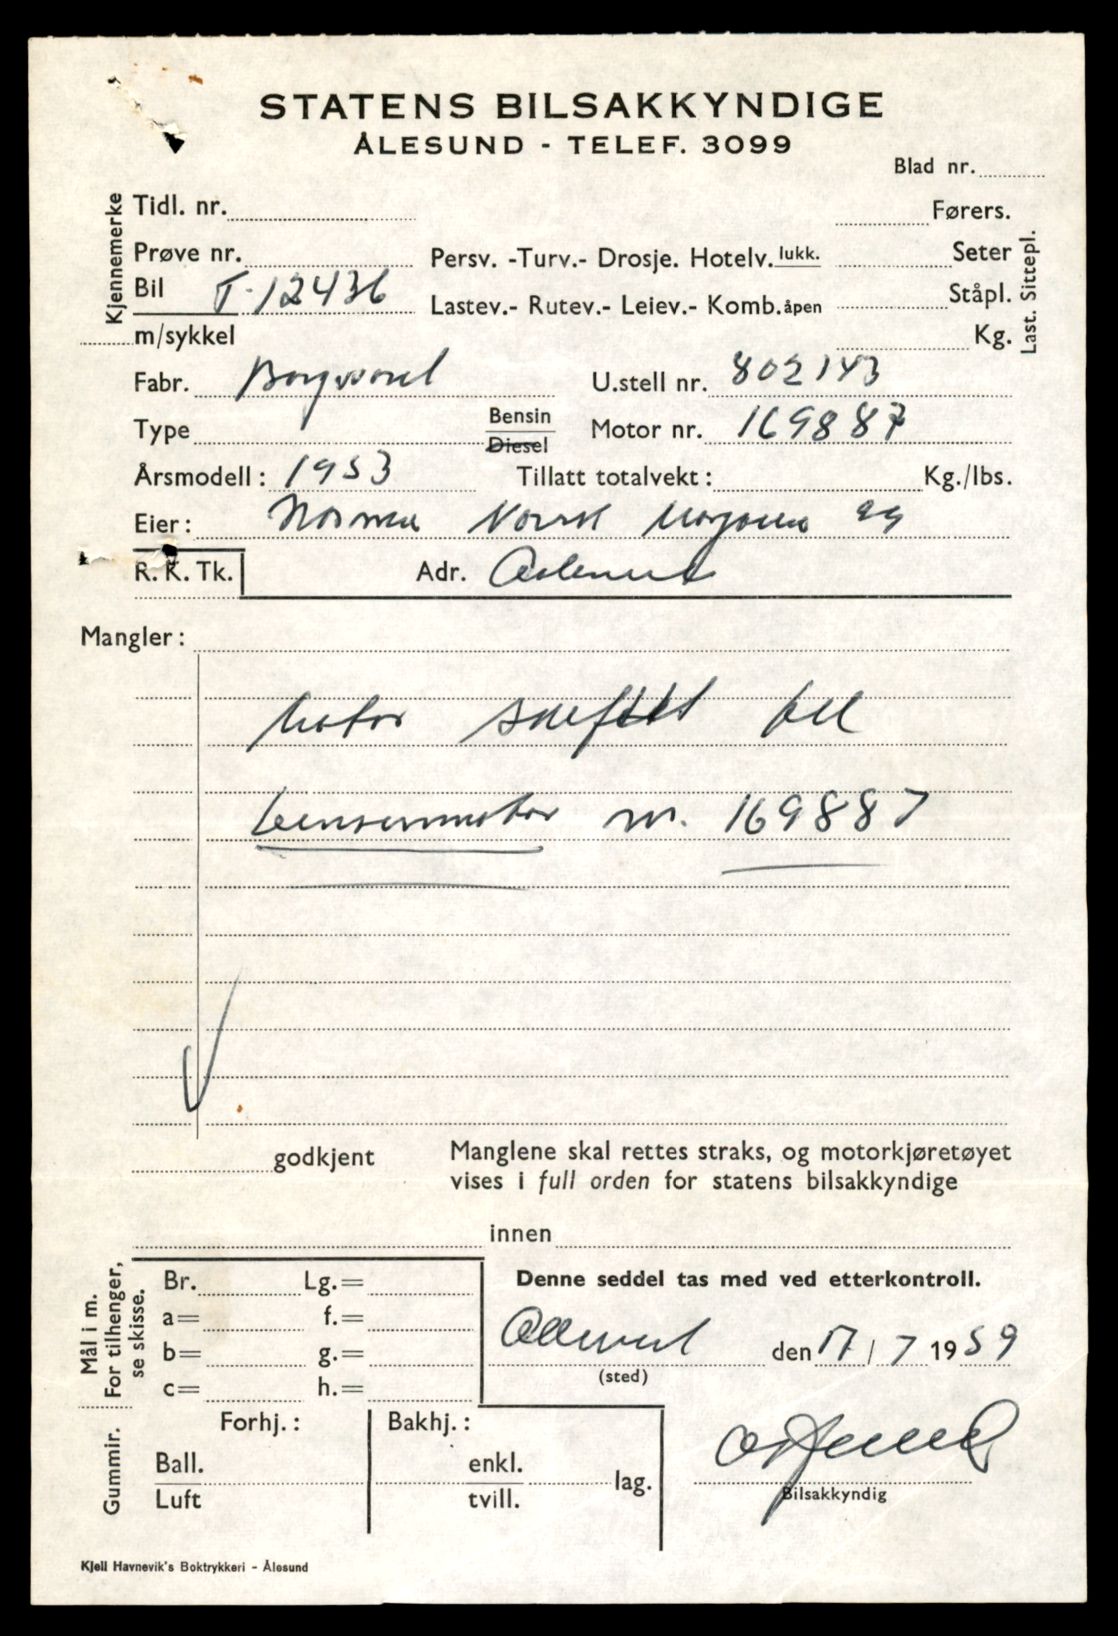 STATENS BILSAKKYNDIGE
ÅLESUND - TELEF. 3099
Blad nr.
Kjennemerke
Tidl. nr.
Førers.
Prøve nr.
Persv. -Turv.- Drosje. Hotelv. lukk.
Seter
Bil T-12436
Lastev.- Rutev.- Leiev.- Komb. åpen
Ståpl.
Last. Sittepl.
m/sykkel
Kg.
Fabr. Borgward
U.stell nr. 802143
Type
Bensin
Diesel
Motor nr. 169887
Årsmodell: 1953
Tillatt totalvekt: Kg./lbs.
Eier: Norsk
R. K. Tk.
Adr. Ålesund
Mangler:
Motor skiftet til
bensinmotor nr. 169887
godkjent
Manglene skal rettes straks, og motorkjøretøyet
vises i full orden for statens bilsakkyndige
innen
Mål i m.
For tilhenger,
se skisse.
Br. Lg.=
a= f.=
b= g.=
c= h.=
Denne seddel tas med ved etterkontroll.
Ålesund den 17/7 1959
(sted)
Gummir.
Forhj.: Bakhj.:
Ball. enkl.
lag.
Luft tvill.
Bilsakkyndig
Kjell Havnevik's Boktrykkeri - Ålesund